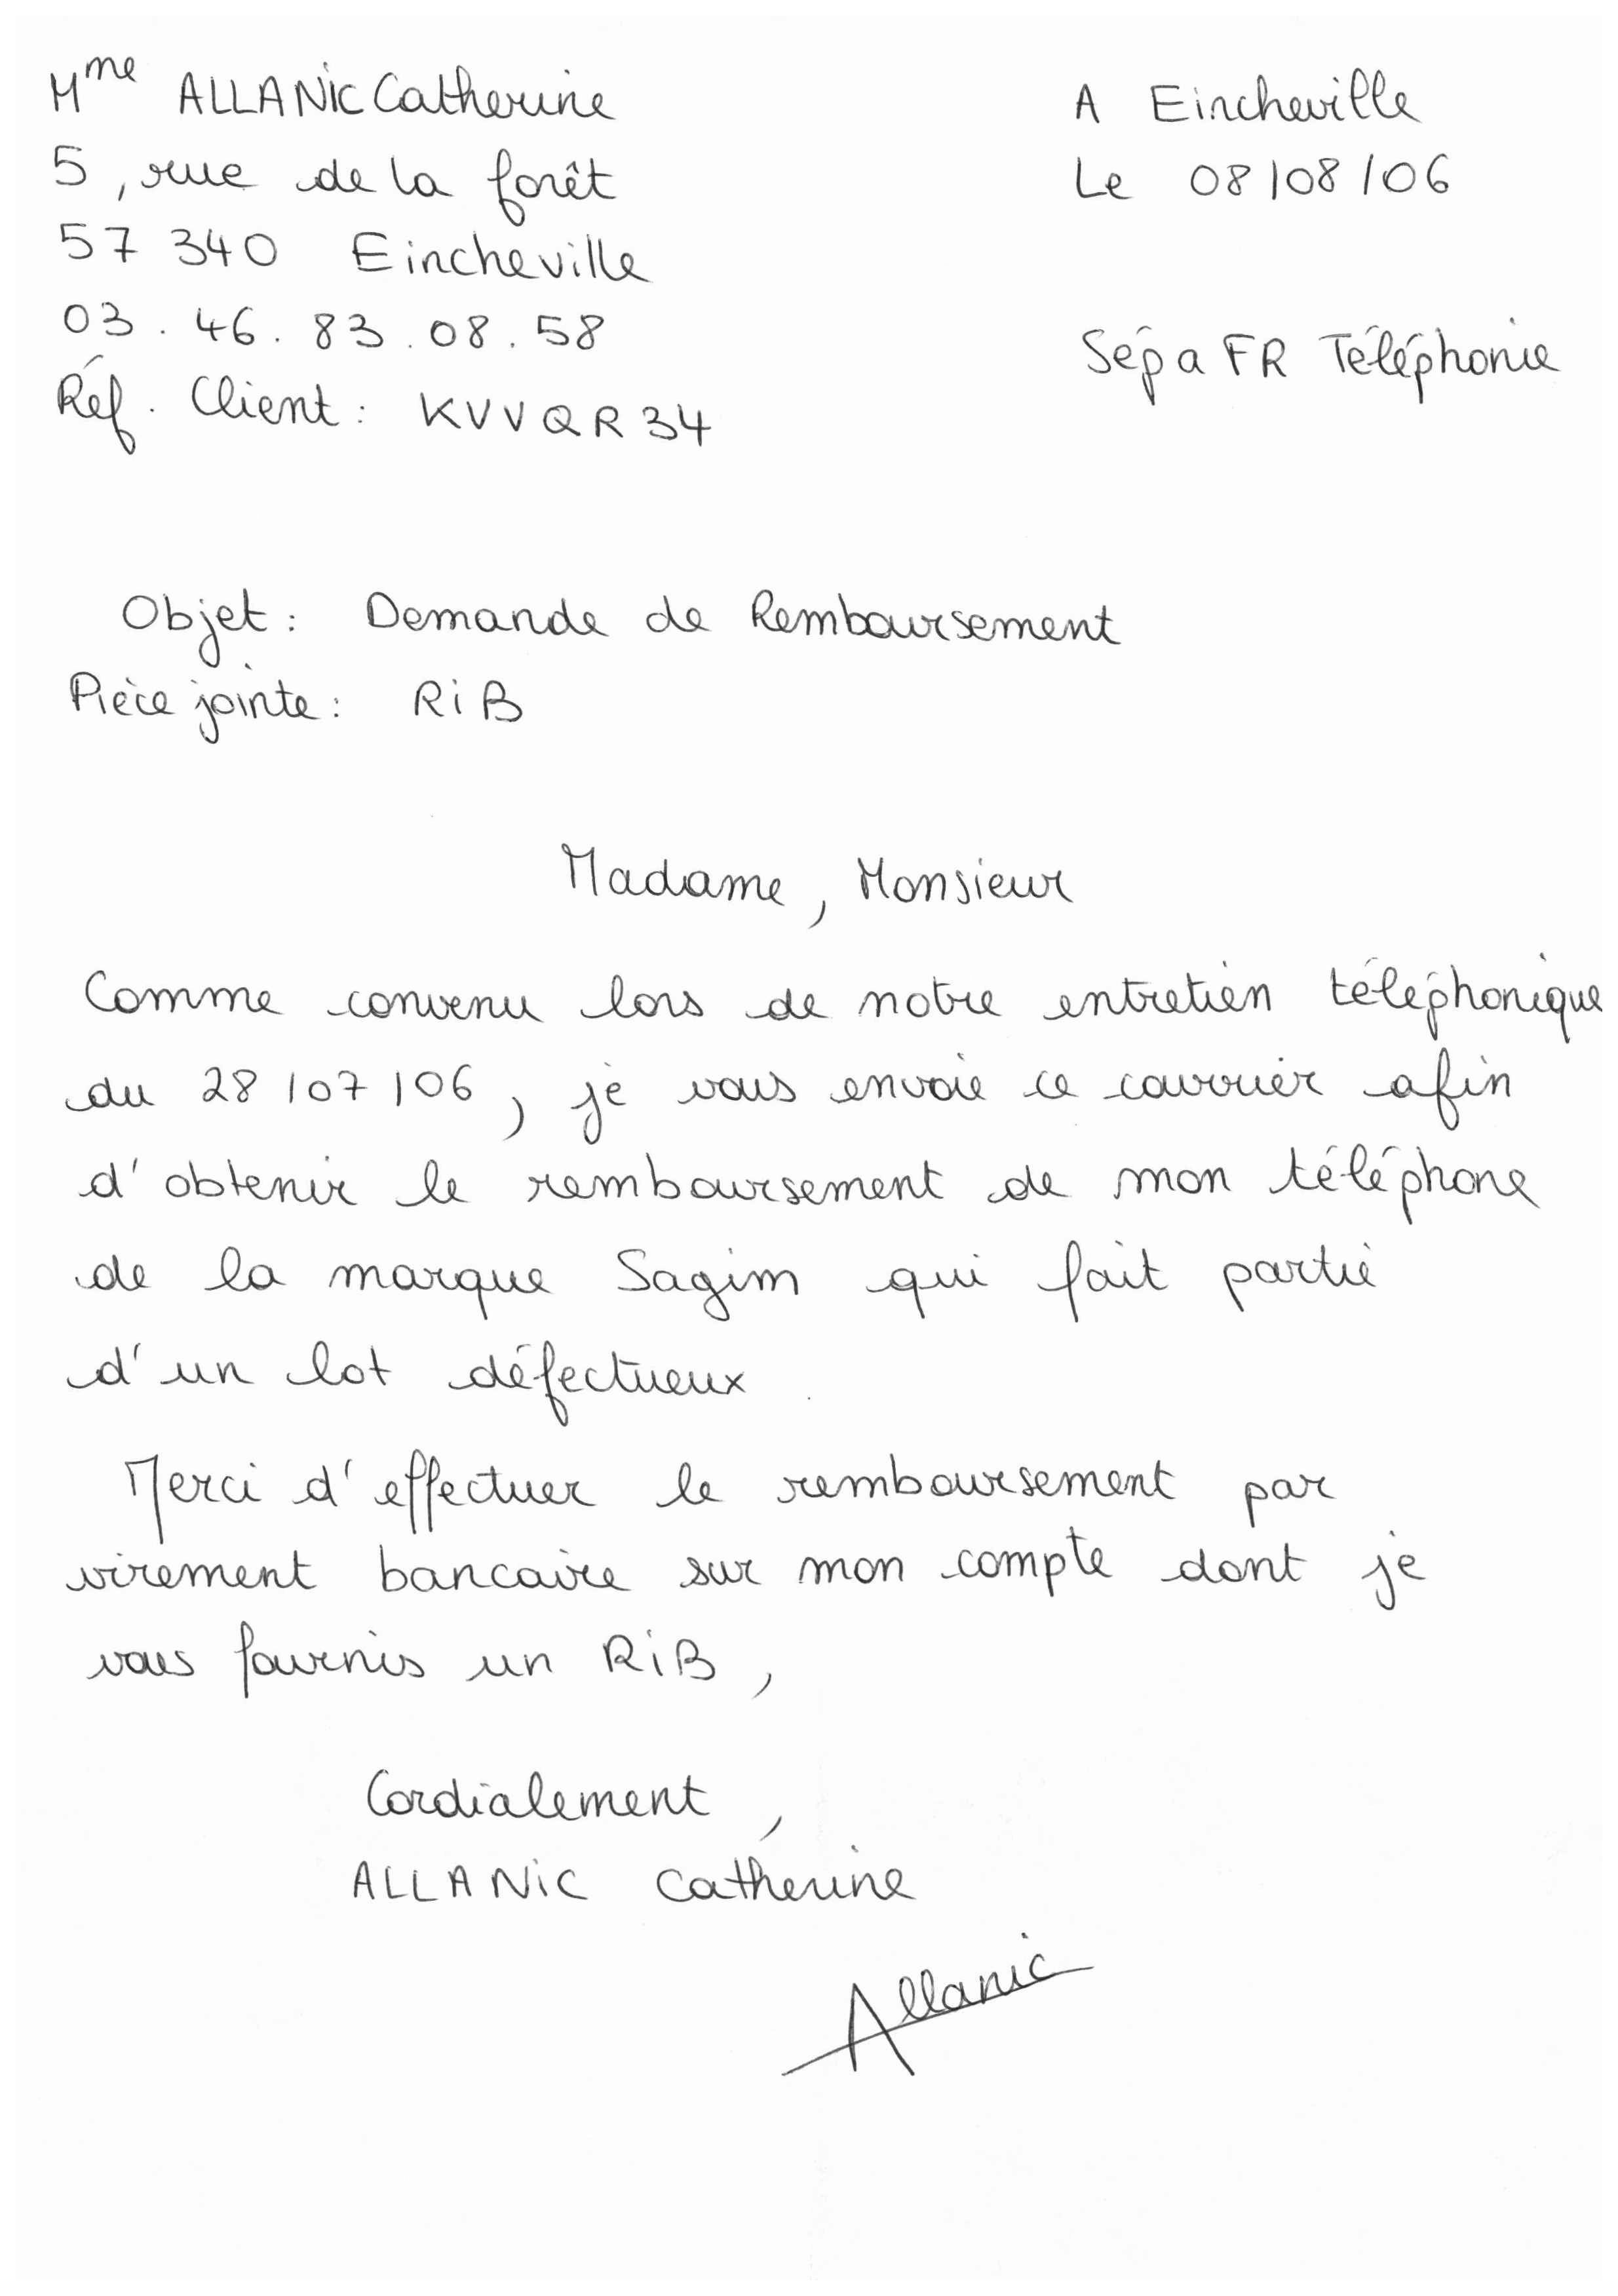 Mme ALLANiC Catherine
5, rue de la forêt
57 340 Eincheville
03.46.83.08.58
Réf. Client : KVVQR34
A Eincheville
Le 08/08/06
Sépa FR Téléphonie
Objet : Demande de Remboursement
Pièce jointe : RiB
Madame, Monsieur
Comme convenu lors de notre entretien téléphonique
du 28/07/06, je vous envoie ce courrier afin
d'obtenir le remboursement de mon téléphone
de la marque Sagim qui fait partie
d'un lot défectueux.
Merci d'effectuer le remboursement par
virement bancaire sur mon compte dont je
vous fournis un RiB,
Cordialement,
ALLANiC Catherine
Allanic